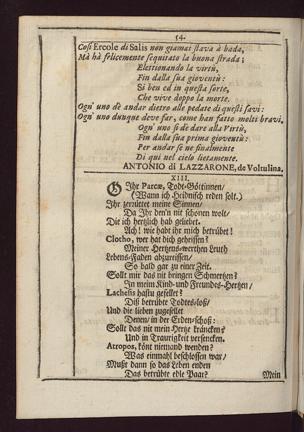 54.
Così Ercole di Salis non giamai stava à bada,
Mà hà felicemente sequitato la buona strada;
Elettionando la virtù,
Fin dalla sua gioventù:
Si ben ed in questa sorte,
Che vive doppo la morte.
Ogn' uno dè andar dietro alle pedate di questi savi:
Ogn' uno dunque deve far, come han fatto molti bravi,
Ogn' uno si dè dare alla Virtù,
Fin dalla sua prima gioventù:
Per andar se ne finalmente
Di qui nel cielo lietamente.
ANTONIO di LAZZARONE, de Voltulina.
XIII.
O Ihr Parcæ, Todt-Göttinnen/
(Wann ich Heidnisch reden solt.)
Ihr zerrüttet meine Sinnen/
Da Ihr den'n nit schonen wolt/
Die ich hertzlich hab geliebet.
Ach! wie habt ihr mich betrübet!
Clotho, wer hat dich geheissen?
Meiner Hertzens-werthen Leuth
Lebens-Faden abzureissen/
So bald gar zu einer Zeit.
Sollt mir das nit bringen Schmertzen?
In meim Kind- und Freundes-Hertzen/
Lachesis hastu gesellet?
Diß betrübte Todtes-loß/
Und die lieben zugesellet
Denen/ in der Erden/schoß:
Sollt das nit mein Hertz kräncken?
Und in Traurigkeit versencken.
Atropos, könt niemand wenden?
Was einmahl beschlossen war/
Mußt dann so das Leben enden
Das betrübte edle Paar?
Mein